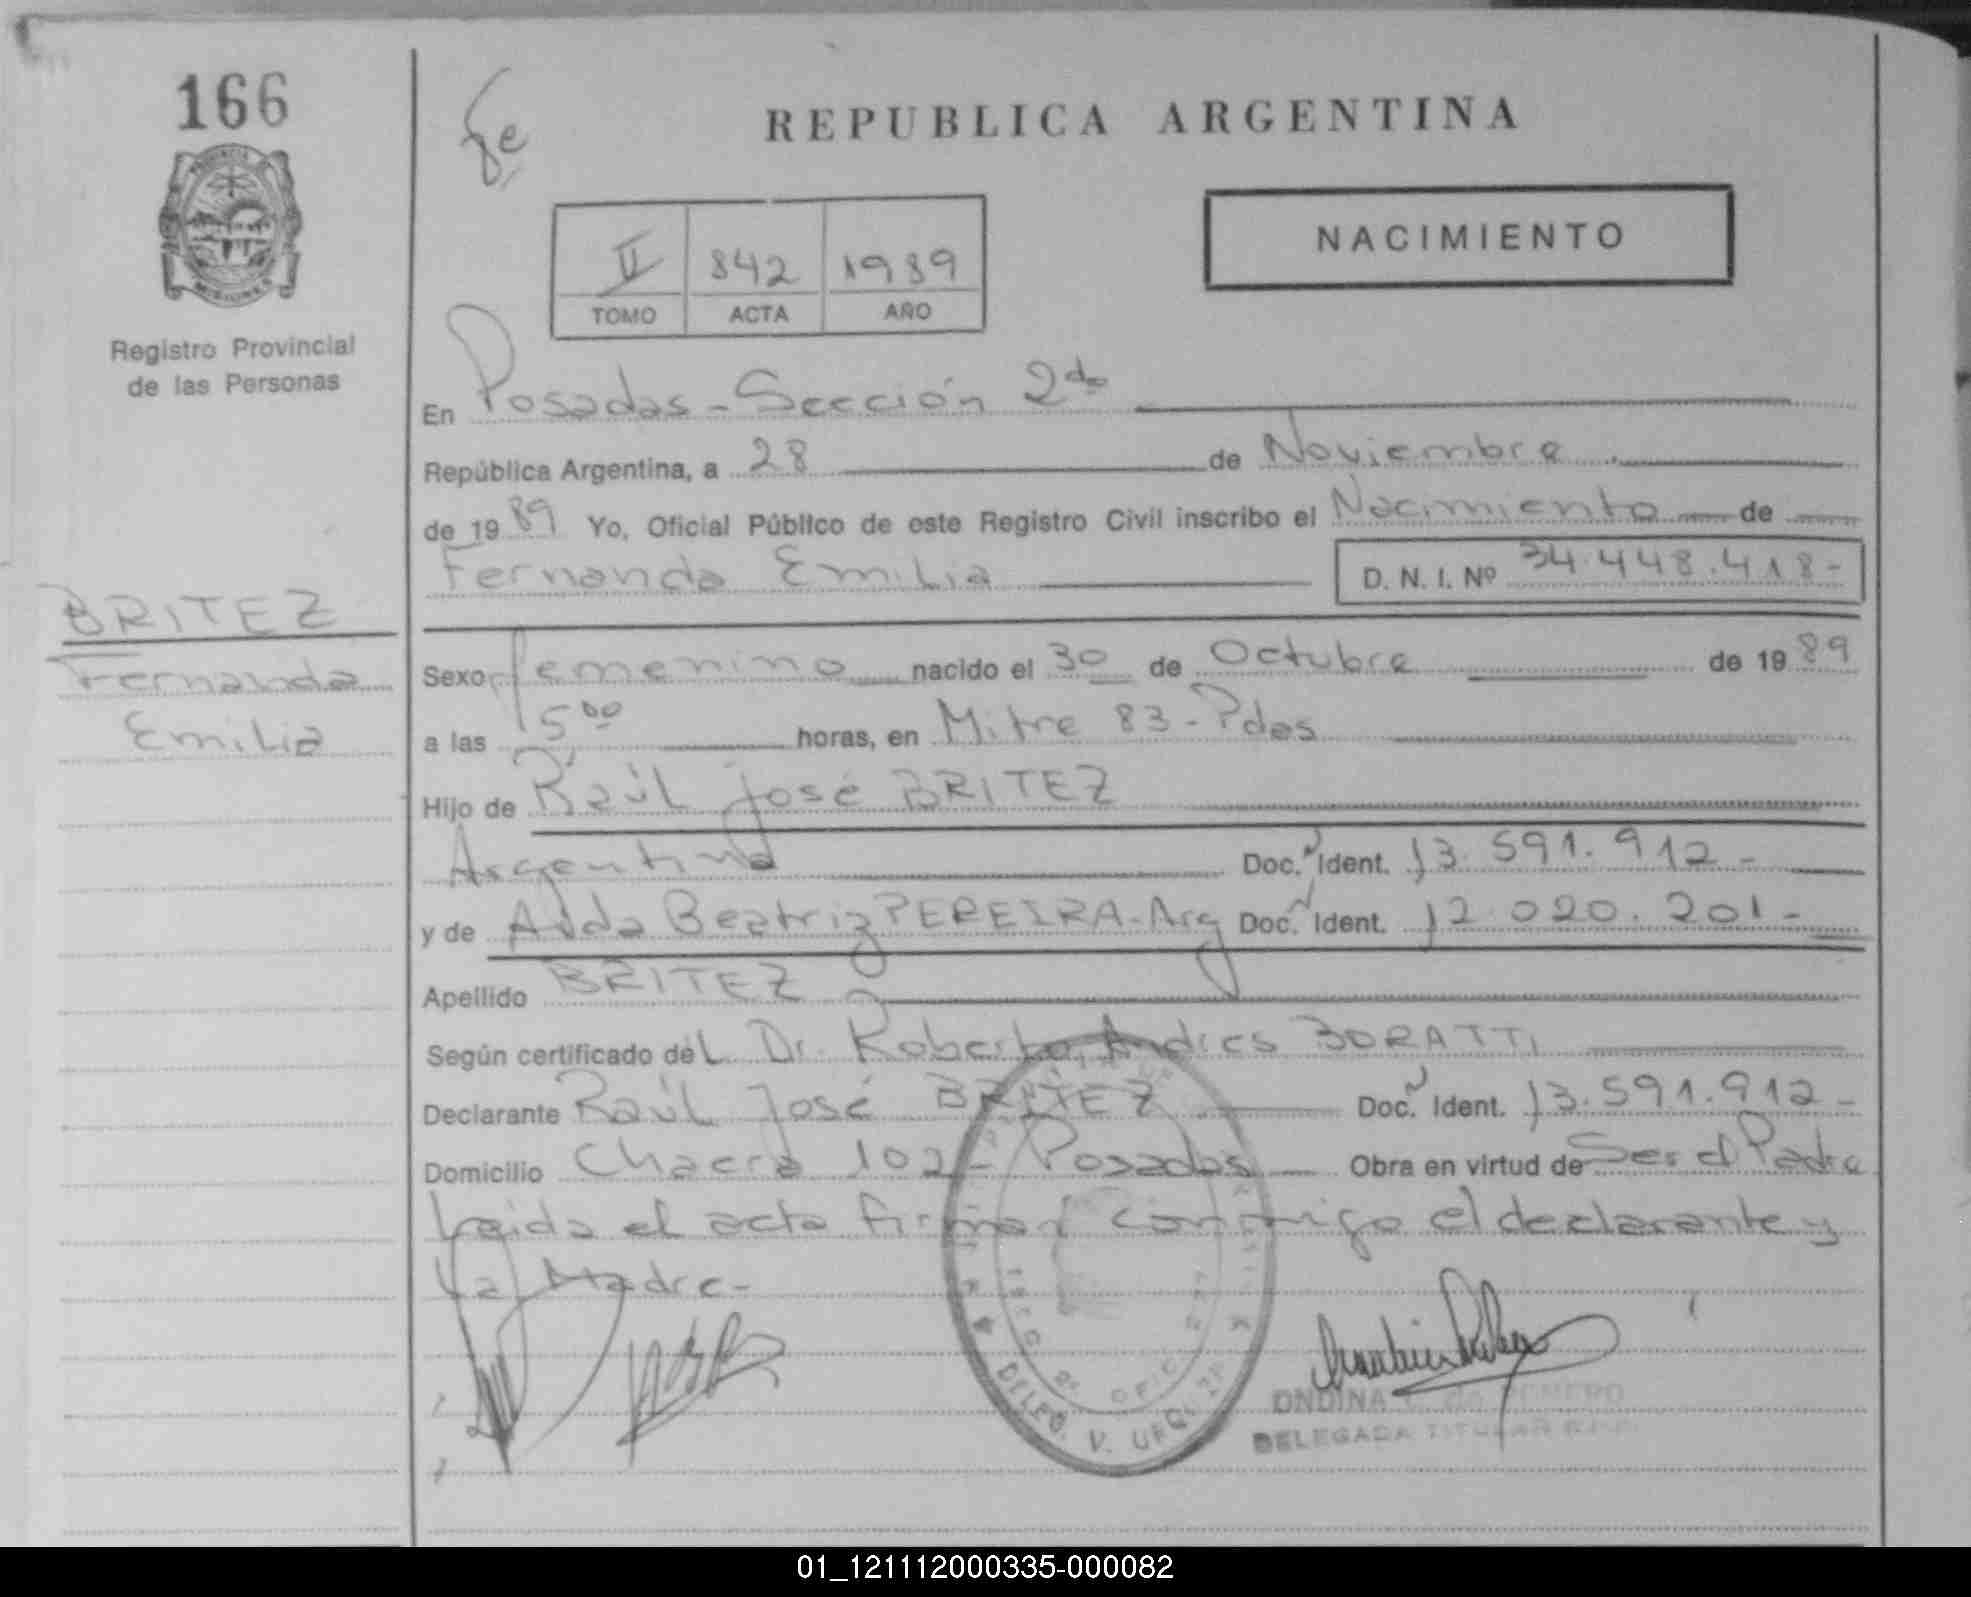 166
REPUBLICA ARGENTINA
PROVINCIA
MISIONES
Registro Provincial
de las Personas
II 842 1989
TOMO ACTA AÑO
NACIMIENTO
En Posadas - Sección 2da
República Argentina, a 28 de Noviembre
de 1989 Yo, Oficial Público de este Registro Civil inscribo el Nacimiento de
Fernanda Emilia D. N. I. Nº 34.448.418-
BRITEZ
Fernanda
Emilia
Sexo femenino nacido el 30 de Octubre de 1989
a las 15 00 horas, en Mitre 83 - Pdas
Hijo de Raúl José BRITEZ
Argentina Doc. Ident. 13.591.912-
y de Beatriz PEREIRA - Arg Doc. Ident. 12.020.201-
Apellido BRITEZ
Según certificado del Dr. Roberto Andres BORATTI
Declarante Raúl José BRITEZ Doc. Ident. 13.591.912-
Domicilio Chacra 102 - Posadas Obra en virtud de Ser el Padre
Leida el acta firman conmigo el declarante y
La Madre-
DELEG. V. URQUIZA
ONDINA de ROMERO
DELEGADA TITULAR
01_121112000335-000082